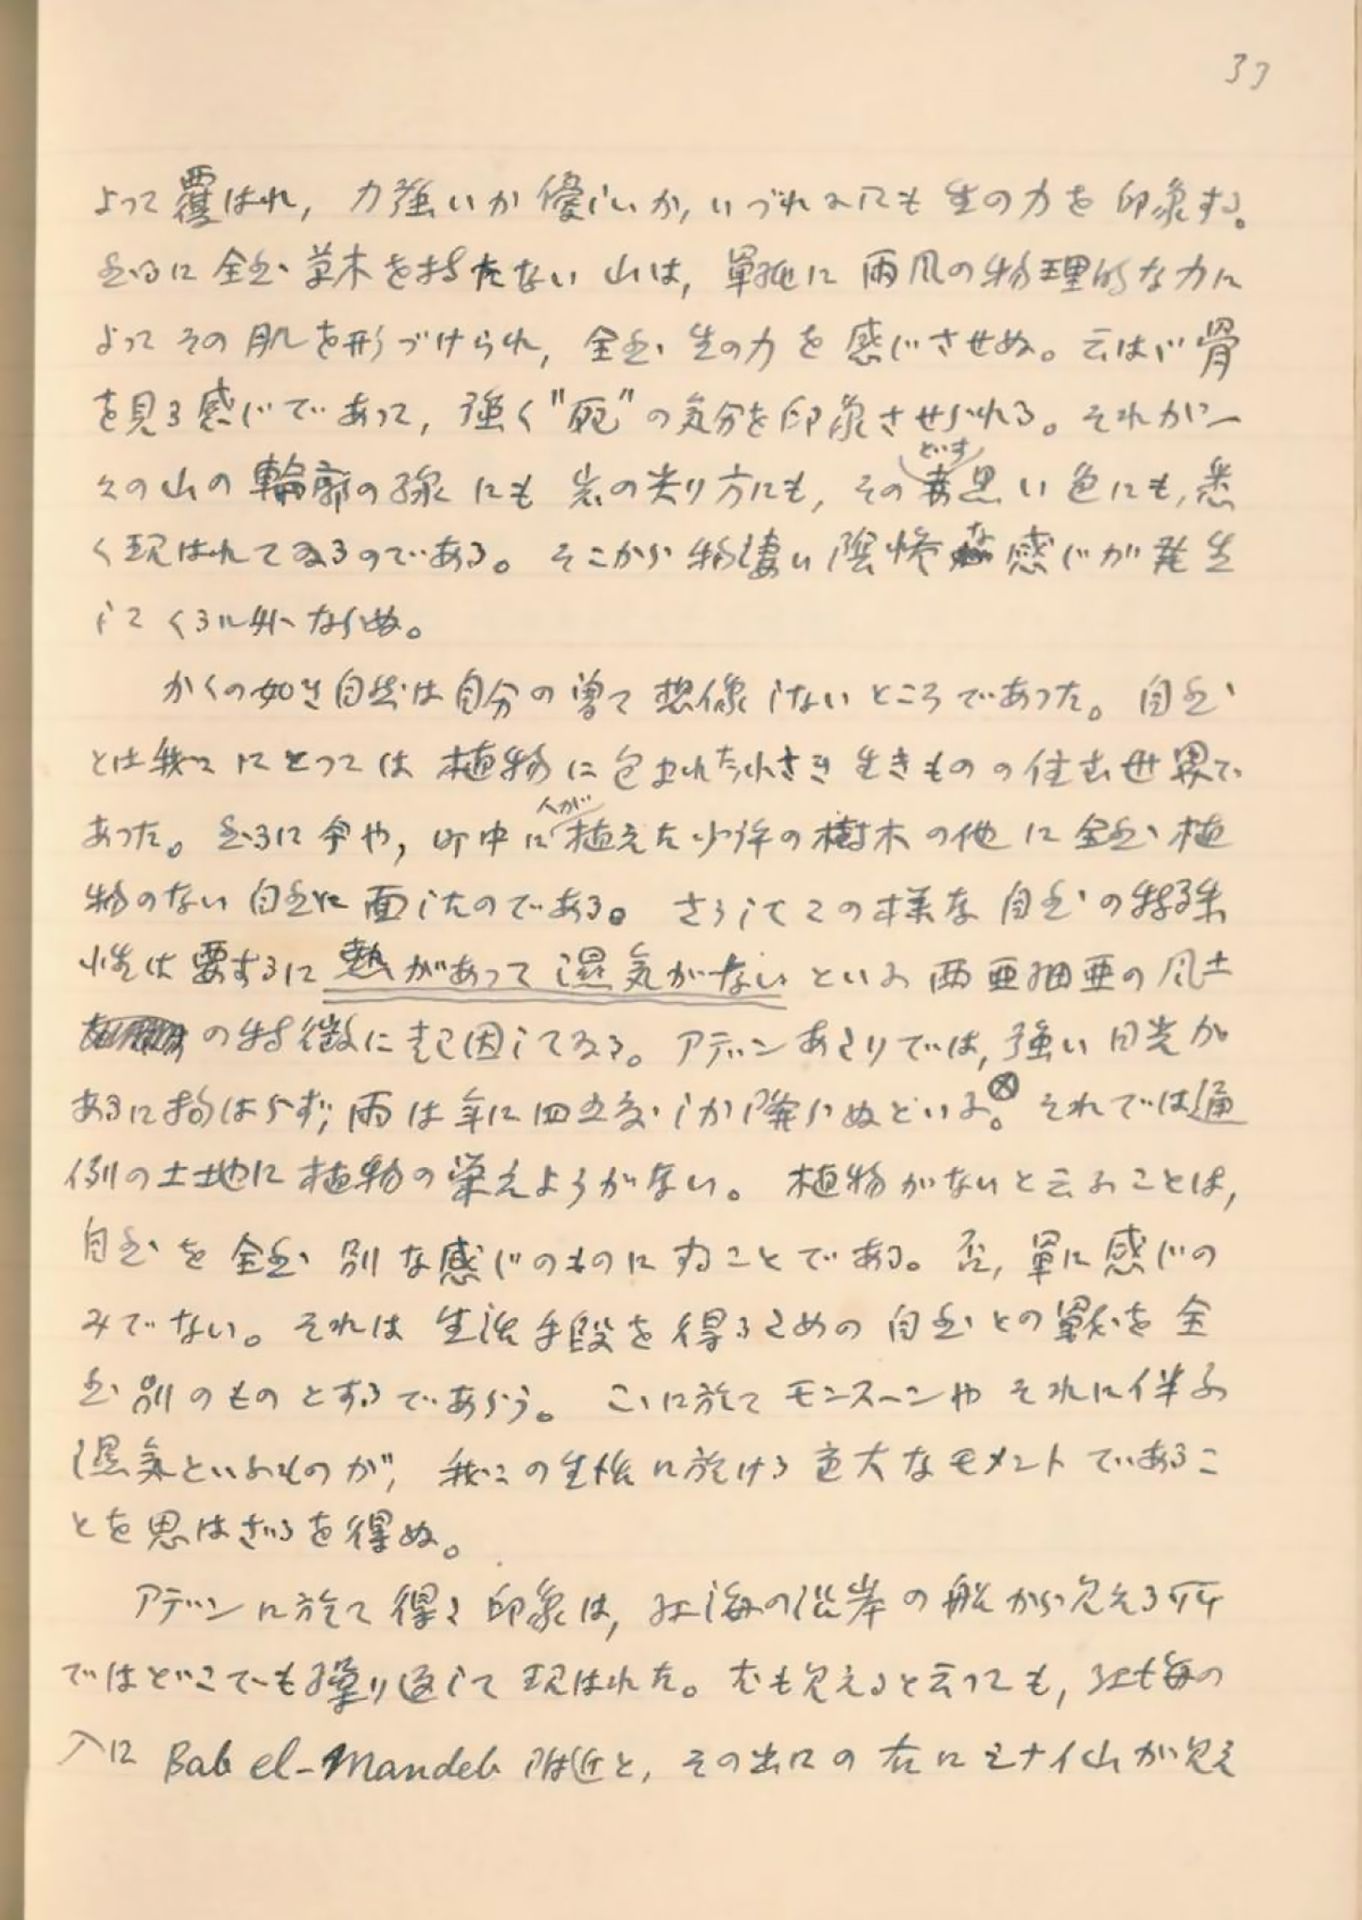 37
よって覆はれ, 力強いか優しいか, いづれにしても生の力を印象する。
然るに全然草木を持たない山は, 単純に雨風の物理的な力に
よってその肌を形づけられ, 全然生の力を感じさせぬ。云はゞ骨
を見る感じであって, 強く"死"の気分を印象させられる。それが一
々の山の輪廓の線にも岩の尖り方にも, その どす 黒い色にも, 悉
く現はれてゐるのである。そこから物凄い陰惨な感じが発生
してくる外ならぬ。
かくの如き自然は自分の曾て想像しないところであつた。自然
とは我々にとつては植物に包まれた小さき生きものの住む世界で
あつた。然るに今や, 町中に人が植えた少許の樹木の他に全然植
物のない自然に面したのである。さうしてこの様な自然の特殊
性は要するに熱があって湿気がないといふ西亜細亜の風土
の特徴に起因してゐる。アデンあたりでは, 強い日光が
あるに拘はらず, 雨は年に四五度しか降らぬといふ。⊗ それでは通
例の土地に植物の栄えようがない。植物がないと云ふことは,
自然を全然別な感じのものにすることである。否, 単に感じの
みでない。それは生活手段を得るための自然との戦を全
然別のものとするであらう。こゝに於てモンスーンやそれに伴ふ
湿気といふものが, 我々の生活に於ける重大なモメントであるこ
とを思はざるを得ぬ。
アデンに於て得た印象は, 紅海の沿岸の船から見える所
ではどこでも繰り返して現はれた。尤も見えると云つても, 紅海の
入口 Bab el-Mandeb 附近と, その出口の右にシナイ山が見え